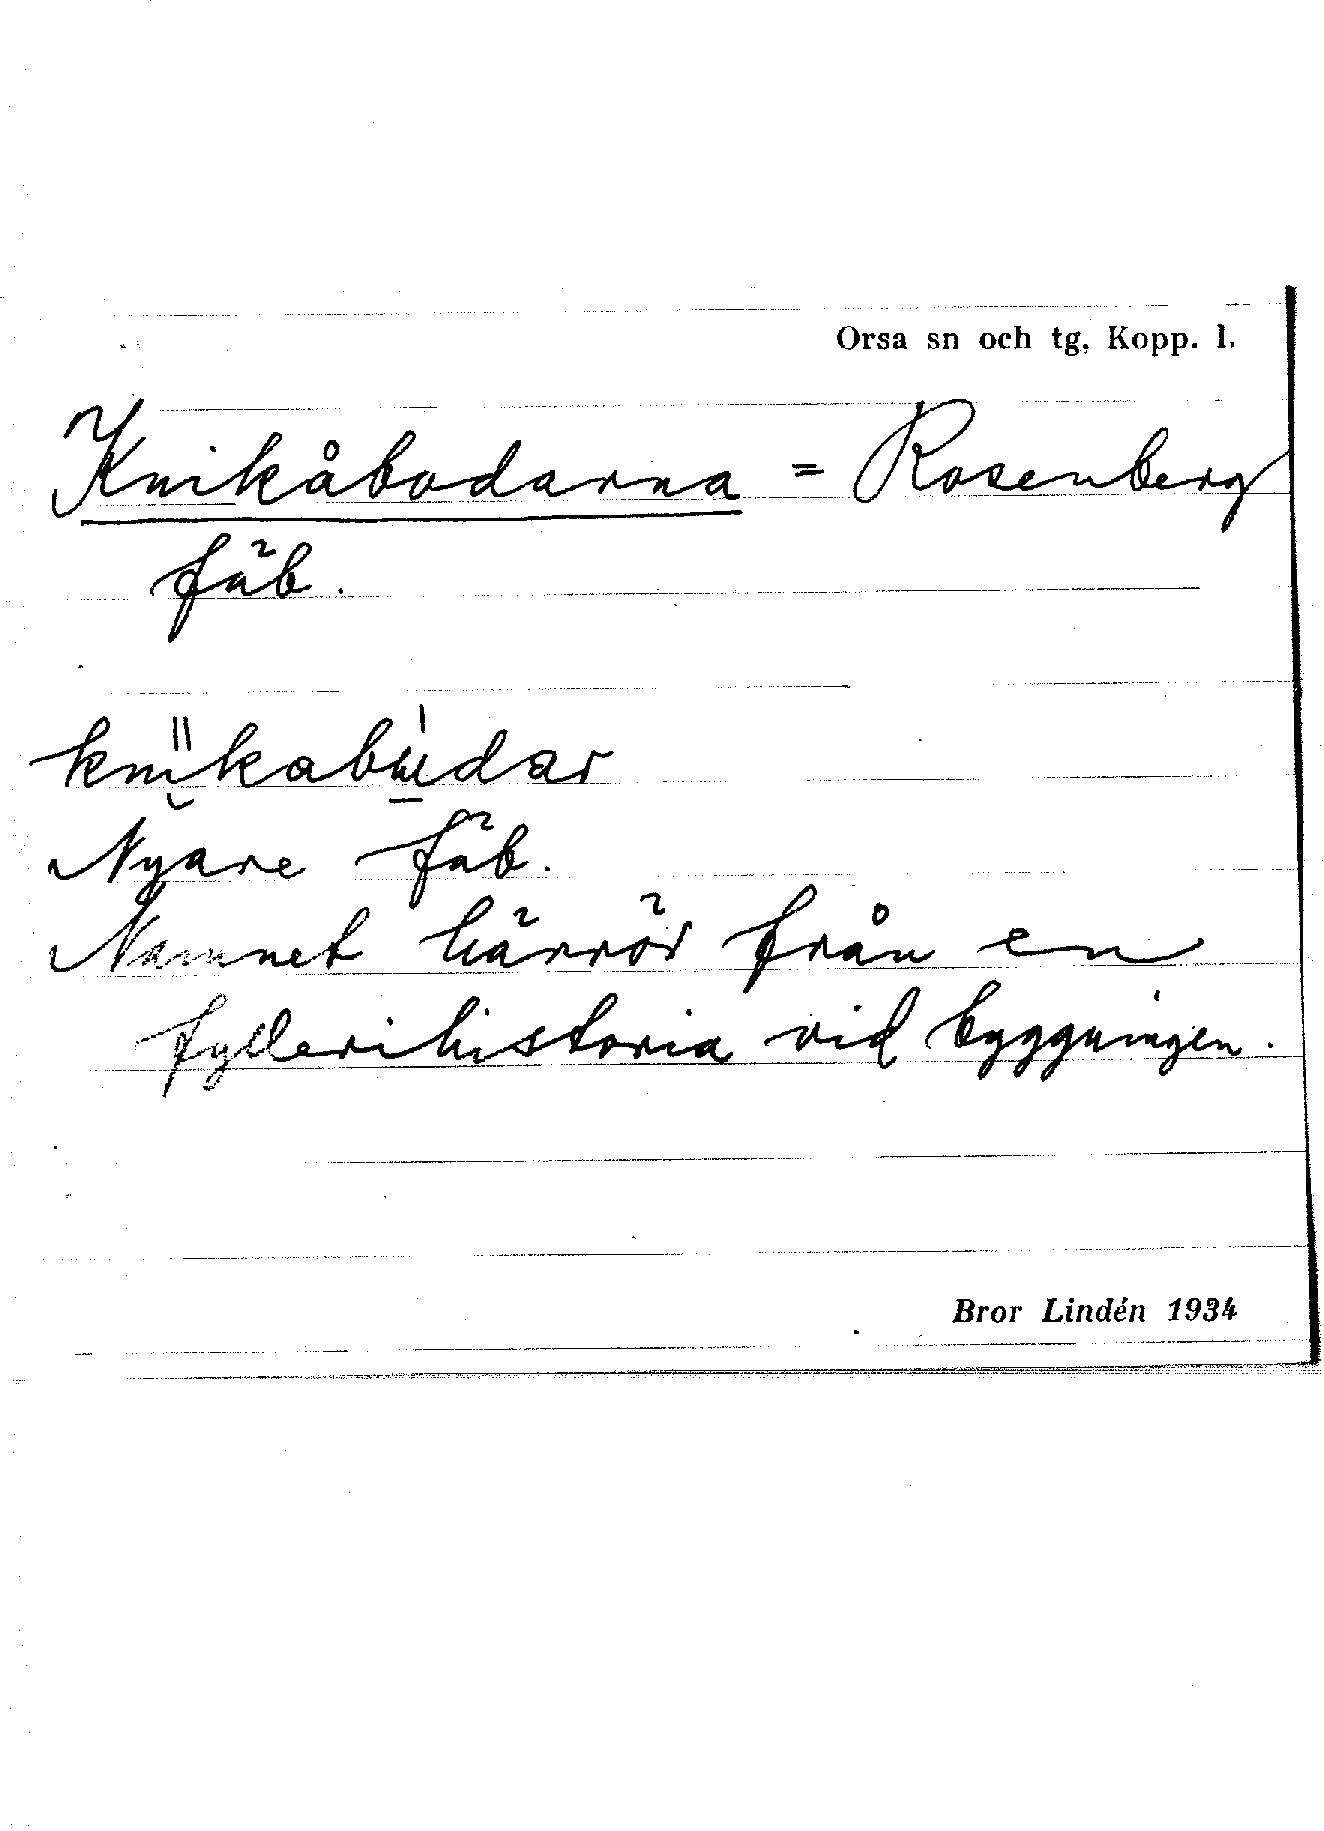 Orsa sn och tg, Kopp. l.
Knikåbodarna = Rosenberg
fäb.
knikabudar
Nyare fäb.
Namnet härrör från en
fyllerihistoria vid byggningen.
Bror Lindén 1934